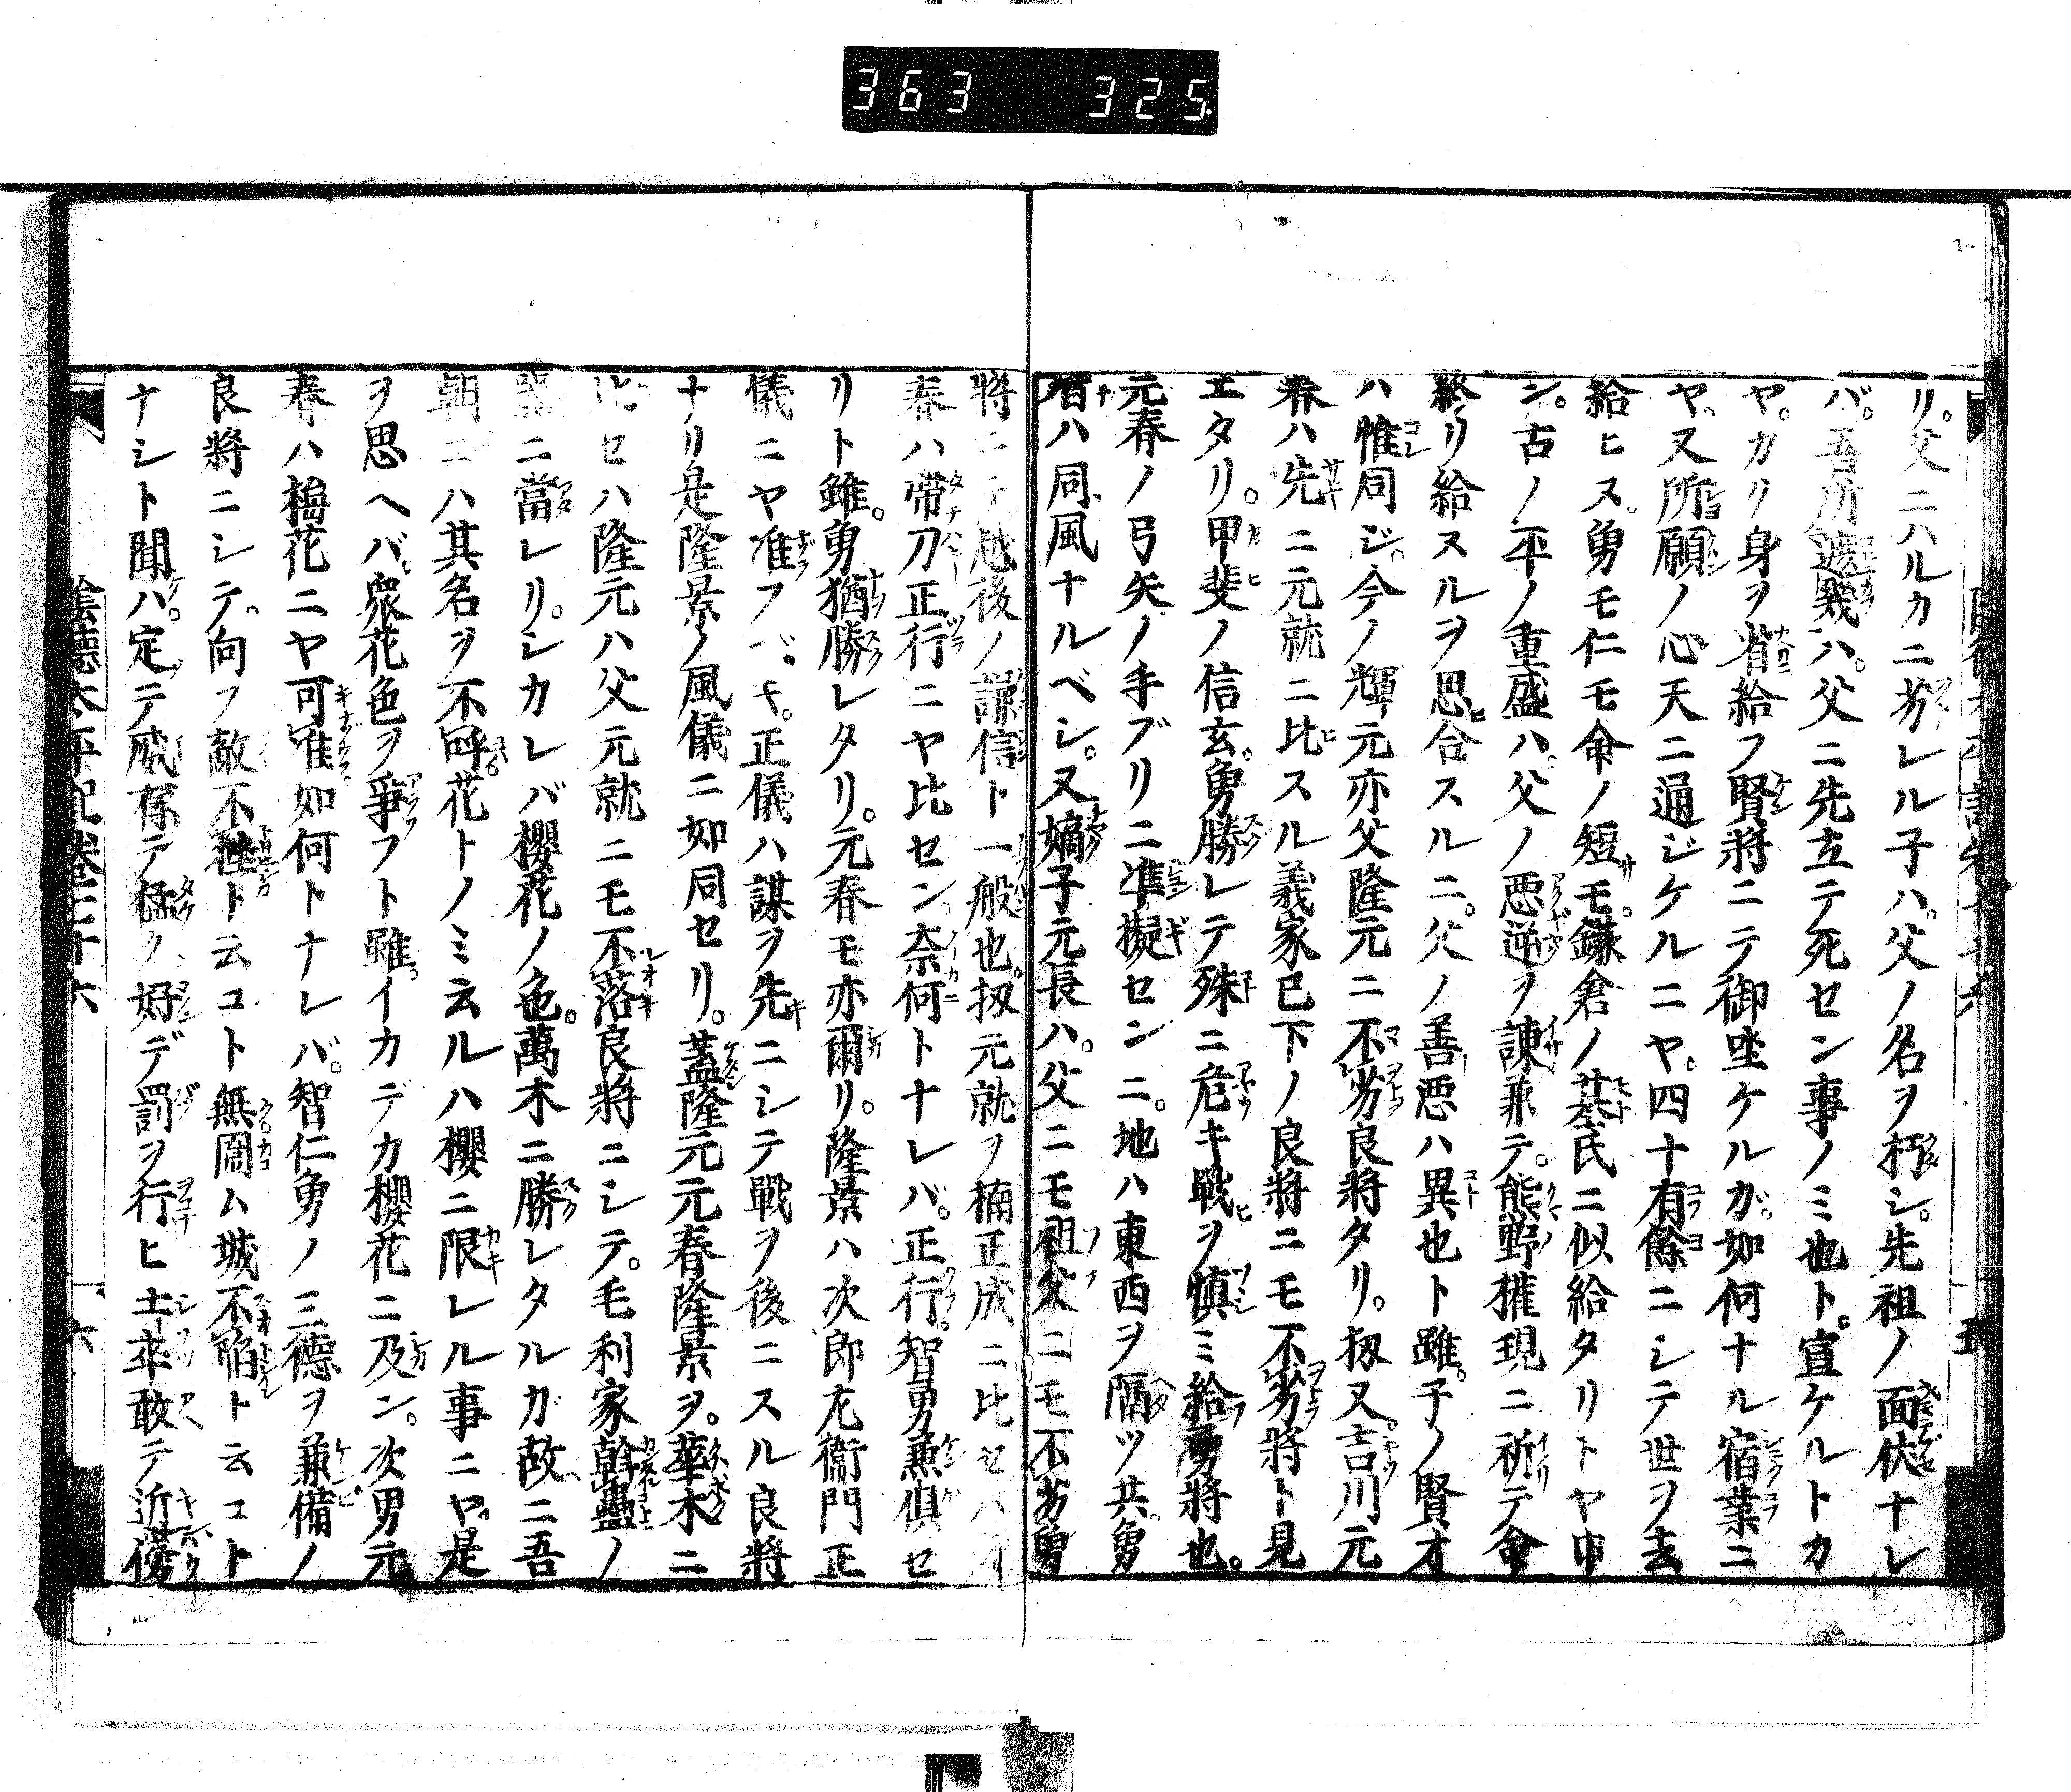 363 325
リ。父ニハルカニ劣レル子ハ。父ノ名ヲ朽シ。先祖ノ面伏ナレ
バ。吾所庶幾ハ。父ニ先立テ死セン事ノミ也ト。宣ケルトカ
ヤ。カリ身ヲ省給フ賢将ニテ御坐ケルガ。如何ナル宿業ニ
ヤ。又所願ノ心天ニ通ジケルニヤ。四十有餘ニシテ世ヲ去
給ヒヌ。勇モ仁モ命ノ短モ。鎌倉ノ某民ニ似給タリトヤ申
ン。古ノ平ノ重盛ハ。父ノ悪逆ヲ諌兼テ。熊野權現ニ祈テ命
終リ給ヌルヲ思合スルニ。父ノ善悪ハ異也ト雖。子ノ賢才
ハ惟同ジ。今ノ輝元亦父隆元ニ不劣良将タリ。扨又。吉川元
春ハ先ニ元就ニ比スル義家已下ノ良將ニモ不劣將ト見
エタリ。甲斐ノ信玄。勇勝レテ殊ニ危キ戰ヲ慎ミ給フ勇將也。
元春ノ弓矢ノ手ブリニ準擬センニ。地ハ東西ヲ隔ツ共。勇
者ハ同風ナルベシ。又嫡子元長ハ。父ニモ祖父ニモ不劣勇
將ニテ越後ノ謙信ト一般也。扨元就ヲ楠正成ニ比セハ元
春ハ帶刀正行ニヤ比セン。奈何トナレバ。正行。智勇兼倶セ
リト雖。勇猶勝レタリ。元春モ亦爾リ。隆景ハ次郎左衞門正
儀ニヤ准フベキ。正儀ハ謀ヲ先ニシテ戰ヲ後ニスル良將
ナリ是隆景ノ風儀ニ如同セリ。蓋隆元元春隆景ヲ。華木ニ
比セハ隆元ハ父元就ニモ不落良將ニシテ。毛利家幹蠱ノ
器ニ當レリ。シカレバ櫻花ノ色。萬木ニ勝レタルガ故ニ吾
朝ニハ其名ヲ不呼花トノミ云ルハ櫻ニ限レル事ニヤ。是
ヲ思ヘバ。衆花色ヲ爭フト雖。イカデカ櫻花ニ及ン。次男元
春ハ梅花ニヤ可准如何トナレバ。智仁勇ノ三德ヲ兼備ノ
良將ニシテ。向フ敵不挫ト云コト無圍ム城不陥ト云コト
ナシト聞ハ。定テ威在テ猛ク好デ罰ヲ行ヒ士卒敢テ近傍
陰德太平記卷三十六 六